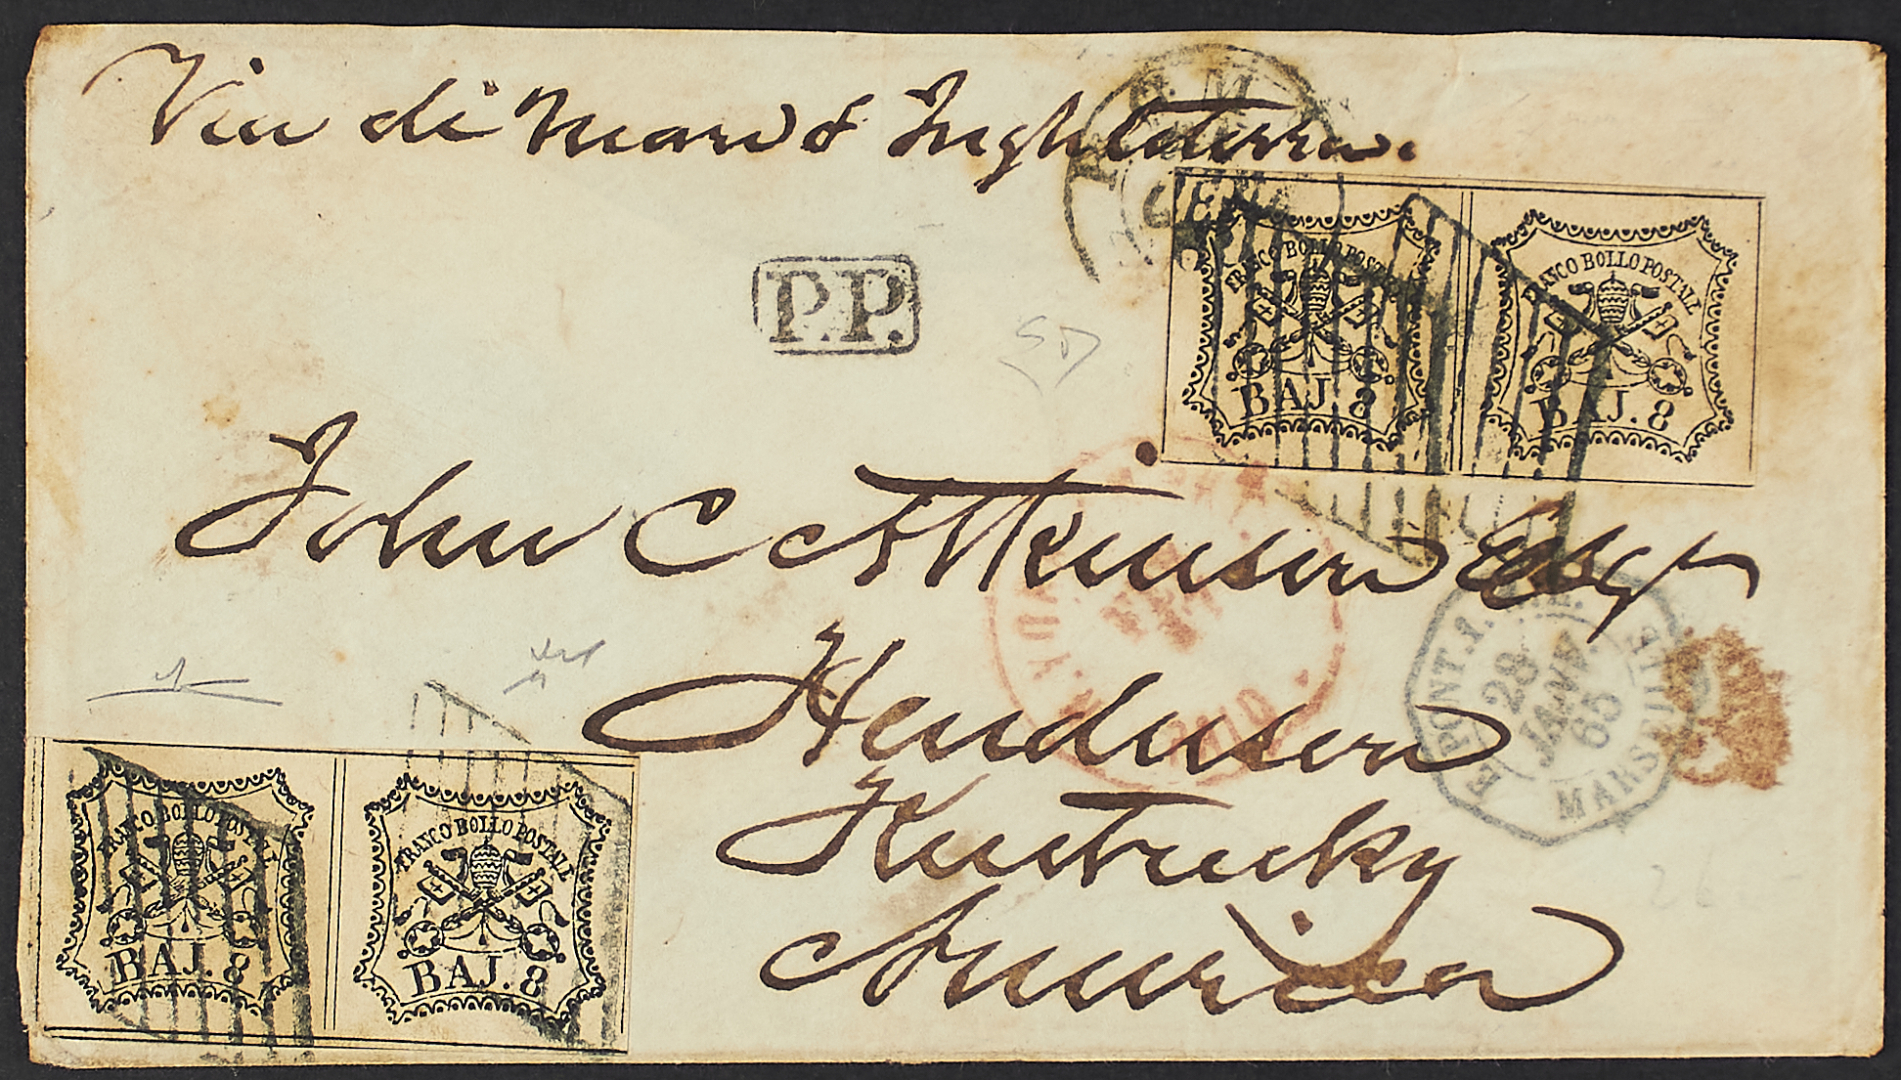 Via di Mare & Inghilterra.
ROMA
GEN
P.P.
FRANCO BOLLO POSTALE
BAJ. 8
FRANCO BOLLO POSTALE
BAJ. 8
John C Atkinson Esqr
PAID
E. PONT. 1.
28
JANV.
65
MARSEILLE
Henderson
Kentucky
America
FRANCO BOLLO POSTALE
BAJ. 8
FRANCO BOLLO POSTALE
BAJ. 8